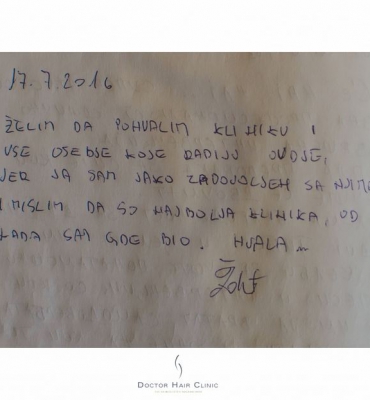 17.7.2016
ŽELIM DA POHVALIM KLINIKU I
VSE OSEBJE KOJE RADIJU OVDJE,
JER JA SAM JAKO ZADOVOLJEN SA NJIMA
I MISLIM DA SO NAJBOLJA KLINIKA, OD
KADA SAM GDE BIO. HVALA
DOCTOR HAIR CLINIC